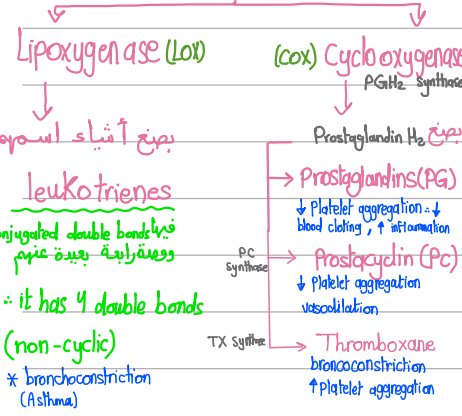 Lipoxygenase (LOX)
(COX) Cyclooxygenase
PGH2 Synthase
بصنع أشياء اسمهم
leukotrienes
فيها
onjugated double bonds
بعيدة عنهم
∴ it has 4 double bonds
(non-cyclic)
* bronchoconstriction
(Asthma)
بصنع Prostaglandin H2
Prostaglandins (PG)
↓ Platelet aggregation ∴ ↓
blood cloting , ↑ inflammation
PC
Synthase
Prostacyclin (Pc)
↓ Platelet aggregation
vasodilation
TX Synthase
Thromboxane
broncoconstriction
↑ Platelet aggregation